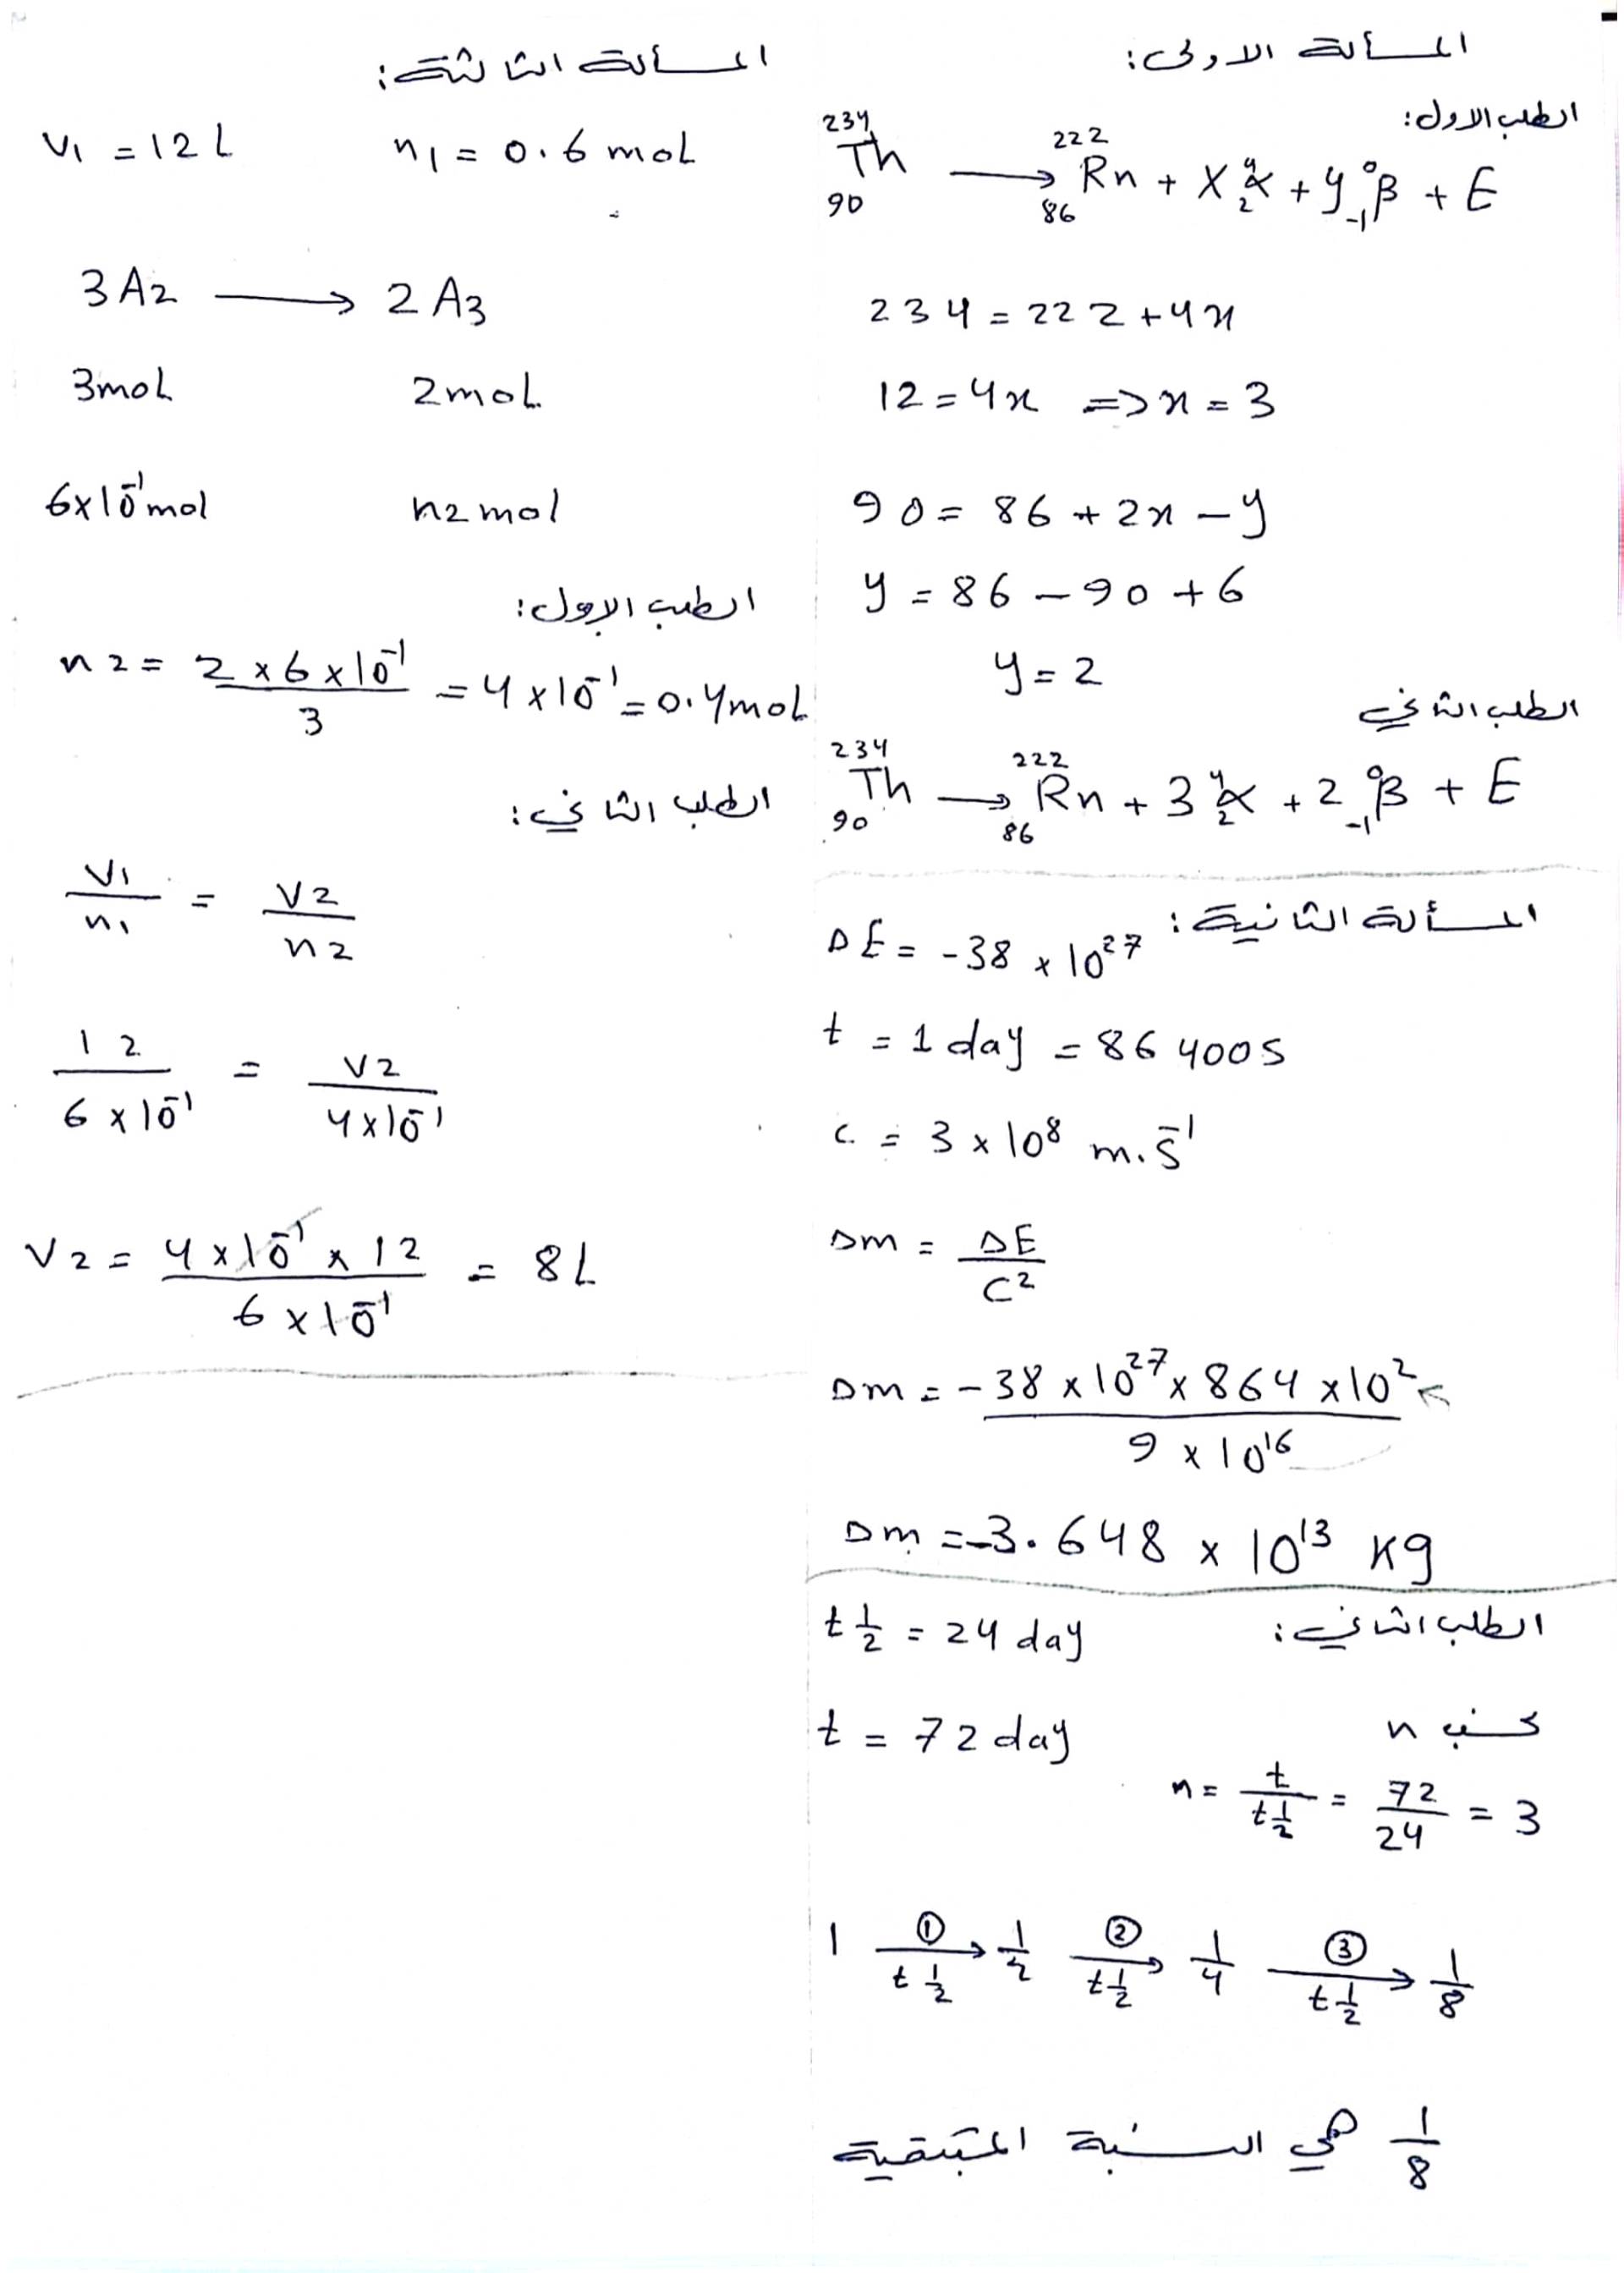 المسألة الاولى:
الطلب الاول:
²³⁴₉₀Th ⟶ ²²²₈₆Rn + X ⁴₂α + y ⁰₋₁β + E
234 = 222 + 4x
12 = 4x => x = 3
90 = 86 + 2x - y
y = 86 - 90 + 6
y = 2
الطلب الثاني
²³⁴₉₀Th ⟶ ²²²₈₆Rn + 3 ⁴₂α + 2 ⁰₋₁β + E
المسألة الثانية:
ΔE = -38 × 10²⁷
t = 1 day = 86400 s
c = 3 × 10⁸ m.s⁻¹
Δm = ΔE / C²
Δm = -38 × 10²⁷ × 864 × 10² / 9 × 10¹⁶
Δm = -3.648 × 10¹³ Kg
الطلب الثاني:
t½ = 24 day
t = 72 day
نحسب n
n = t / t½ = 72/24 = 3
1 ①⟶ t½ 1/2 ②⟶ t½ 1/4 ③⟶ t½ 1/8
1/8 هي النسبة المتبقية
المسألة الثالثة:
V1 = 12 L n1 = 0.6 mol
3 A2 ⟶ 2 A3
3mol 2mol
6×10⁻¹ mol n2 mol
الطلب الاول:
n2 = 2 × 6 × 10⁻¹ / 3 = 4 × 10⁻¹ = 0.4 mol
الطلب الثاني:
V1/n1 = V2/n2
12 / 6 × 10⁻¹ = V2 / 4×10⁻¹
V2 = 4 × 10⁻¹ × 12 / 6 × 10⁻¹ = 8 L